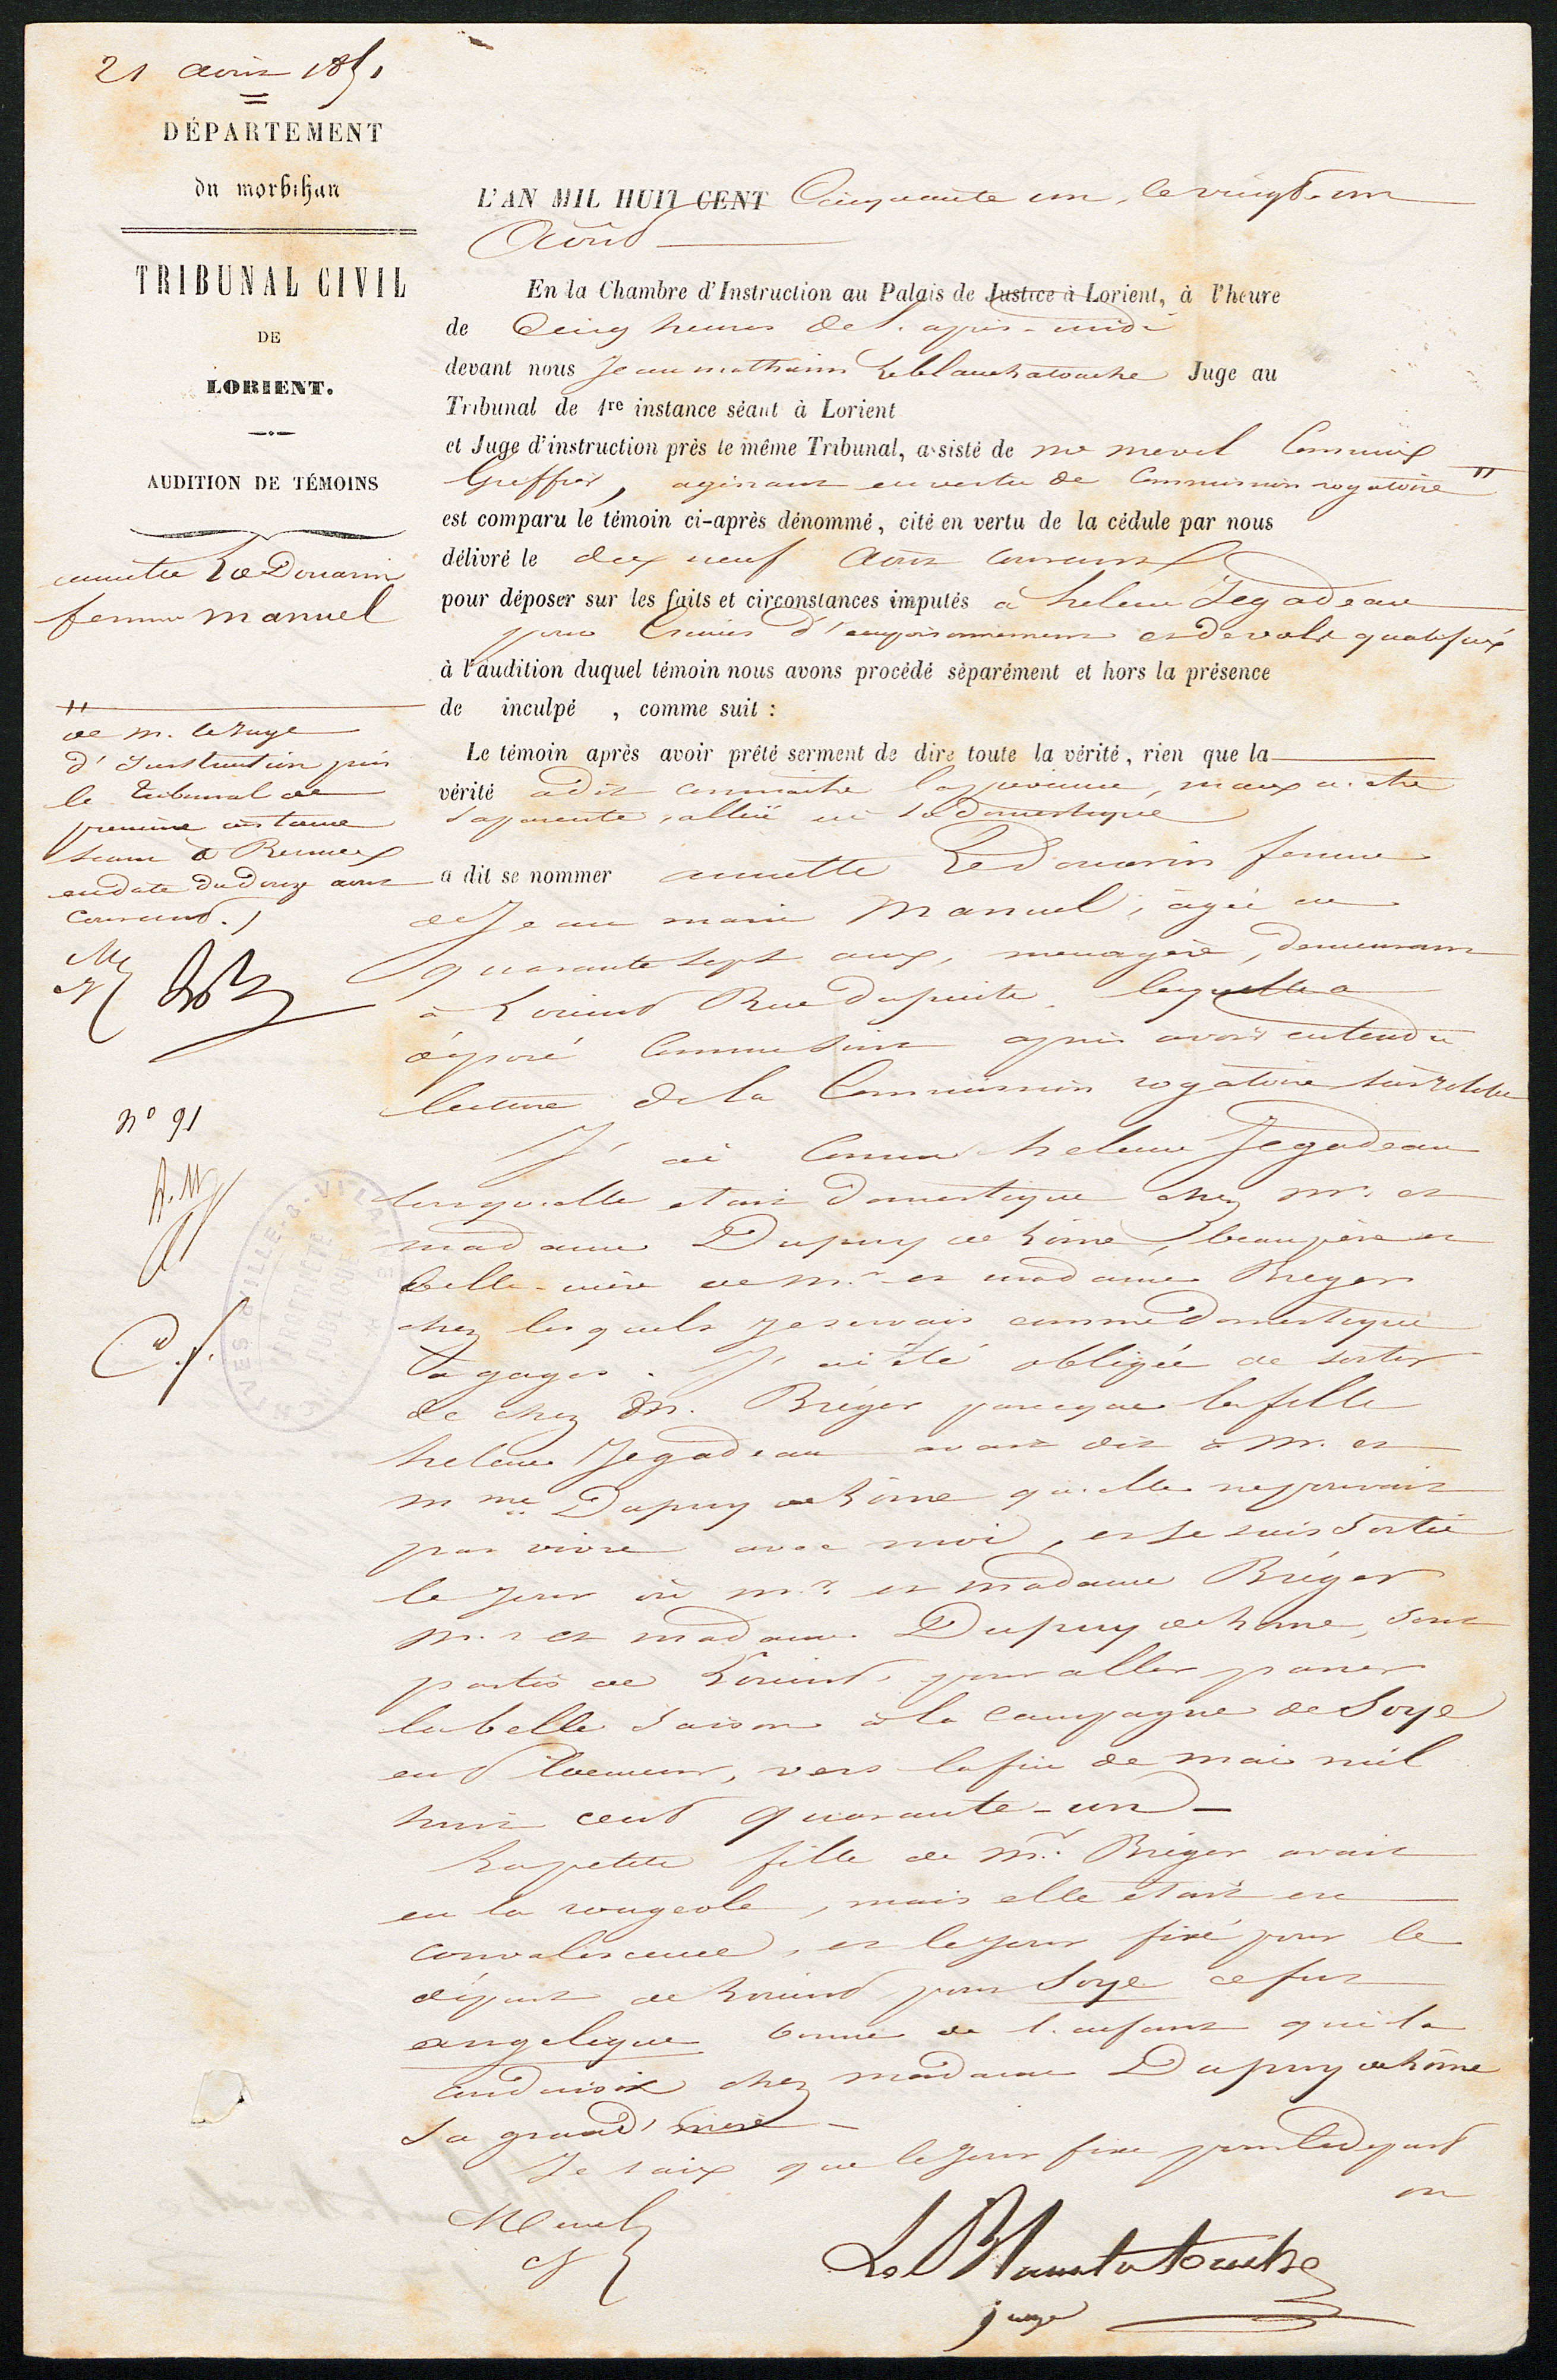 21 août 1851
DÉPARTEMENT
du morbihan
TRIBUNAL CIVIL
DE
LORIENT.
AUDITION DE TÉMOINS
annette Le Douarin
femme manuel
"
de m. le Juge
d'Instruction près
le tribunal de
premiere instance
séant à Rennes
en date du douze aout
courant.)
n° 91
L'AN MIL HUIT CENT Cinquante un, le vingt-un
Août
En la Chambre d'Instruction au Palais de Justice à Lorient, à l'heure
de Cinq heures de l'apres-midi
devant nous Jean mathurin Le blanchatouche Juge au
Tribunal de 1re instance séant à Lorient
et Juge d'instruction près le même Tribunal, assisté de me mevel Commis
Greffier, agissant en vertu de Commission rogatoire "
est comparu le témoin ci-après dénommé, cité en vertu de la cédule par nous
délivré le dix neuf Août courant
pour déposer sur les faits et circonstances imputés a helene Jegadeau
pour Crimes d'empoisonnement et de vols qualifiés
à l'audition duquel témoin nous avons procédé séparément et hors la présence
de inculpé , comme suit :
Le témoin après avoir prêté serment de dire toute la vérité, rien que la
vérité a dit connaître la prevenue, mais n'etre
sa parente, alliée ni sa domestique
a dit se nommer annette Le Douarin femme
de Jean marie Manuel, agée de
quarante sept ans, menagère, demeurant
à Lorient Rue du puits, laquelle a
déposé Comme suit après avoir entendu
lecture de la Commission rogatoire susrelatée
J'ai connu helene Jegadeau
lorsqu'elle etait domestique chez mr. et
madame Dupuy de Lôme, beau père et
belle-mère de Mr. et madame Breger
chez lesquels je servais comme domestique
à gages. J'ai été obligée de sortir
de chez M. Bréger parceque la fille
helene Jegadeau avait dit à M. et
mme Dupuy de Lôme qu'elle ne pouvait
pas vivre avec moi, et je suis sortie
le jour où mr. et madame Bréger
m.r et madame Dupuy de Lome, sont
partis de Lorient, pour aller passer
la belle saison à la campagne de Soye
en Ploemeur, vers la fin de mai mil
huit cent quarante-un —
La petite fille de Mr. Bréger avait
eu la rougeole, mais elle était en
convalescence, et le jour fixé pour le
départ de Lorient pour Soye ce fut
angelique bonne de l'enfant qui la
conduisit chez madame Dupuy de Lôme
sa grand'mère —
Je sais que le jour fixé pour le depart
on
Mevel
Le Blanchatouche
juge
ARCHIVES D'ILLE-&-VILAINE
PROPRIÉTÉ
PUBLIQUE